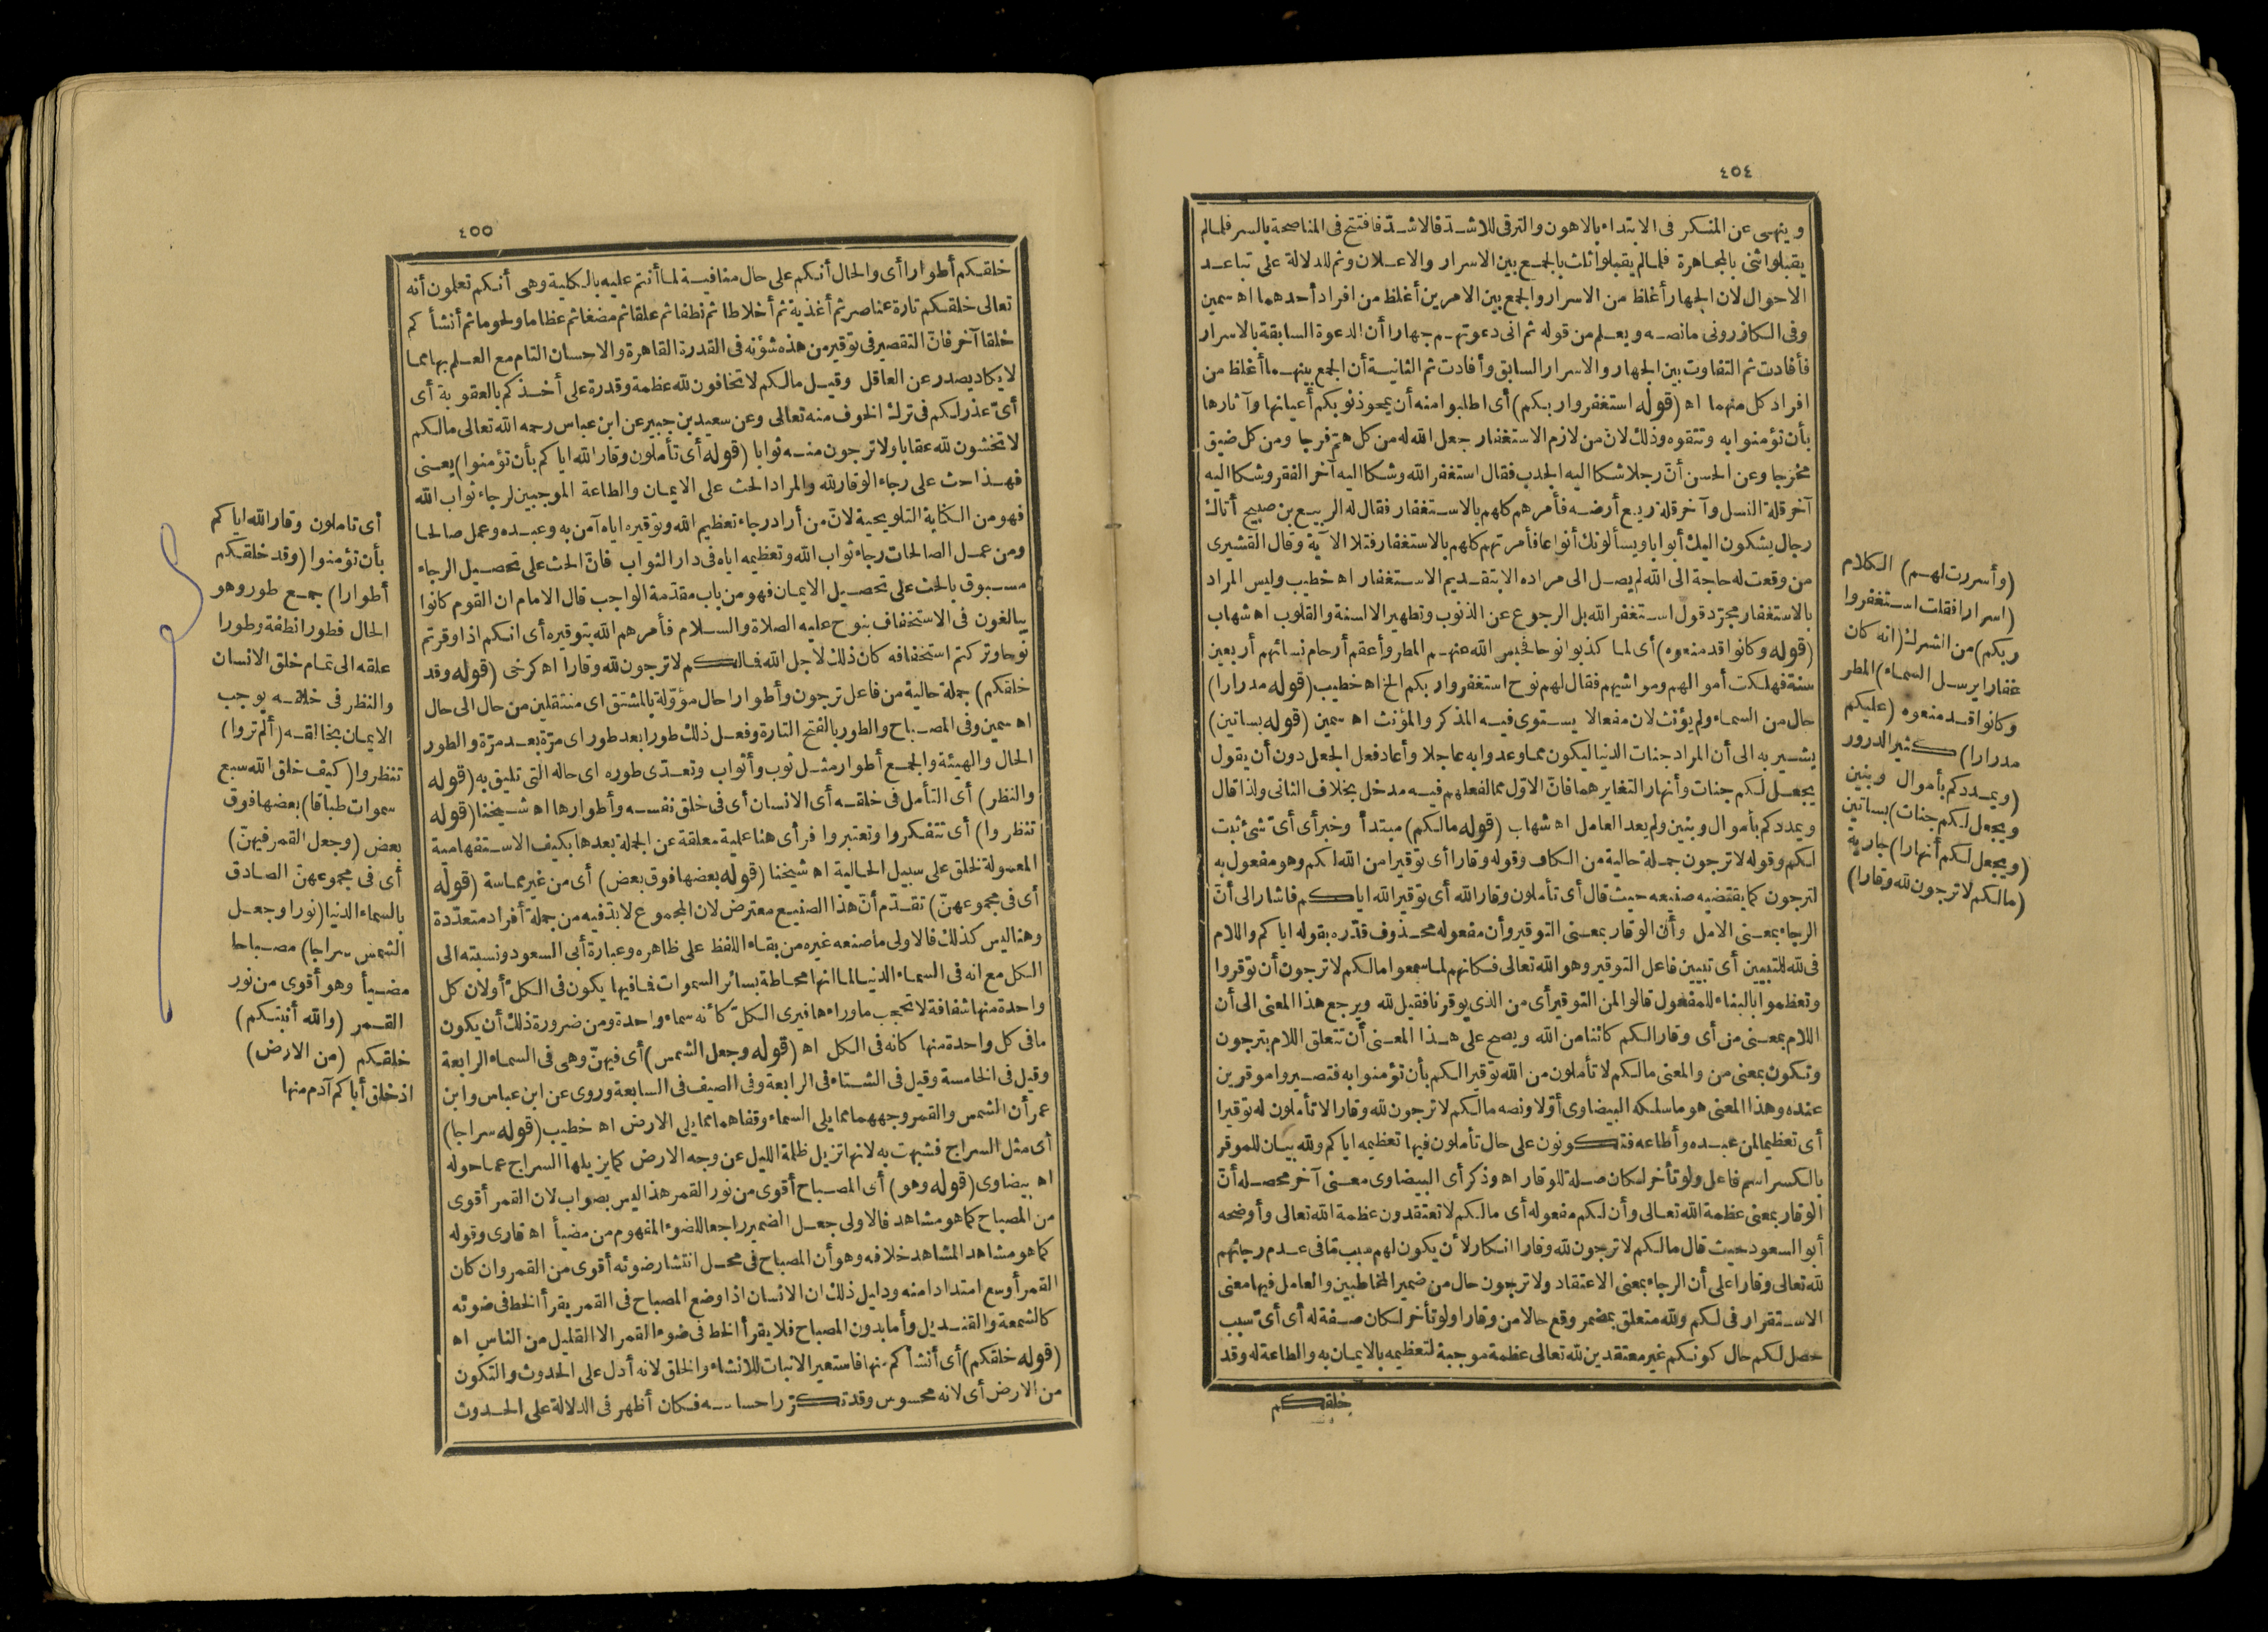 ٤٥٤
وينهى عن المنكر فى الابتداء بالاهون والترقى للاشد فالاشد فافتتح فى المناصحة بالسر فلما لم
يقبلوا ثنى بالمجاهرة فلما لم يقبلوا ثلث بالجمع بين الاسرار والاعلان وثم للدلالة على تباعد
الاحوال لان الجهار أغلظ من الاسرار والجمع بين الامرين أغلظ من افراد أحدهما اه سمين
وفى الكازرونى مانصه ويعلم من قوله ثم انى دعوتهم جهارا أن الدعوة السابقة بالاسرار
فأفادت ثم التفاوت بين الجهار والاسرار السابق وأفادت ثم الثانية أن الجمع بينهما أغلظ من
افراد كل منهما اه (قوله استغفروا ربكم) أى اطلبوا منه أن يمحو ذنوبكم أعيانها وآثارها
بأن تؤمنوا به وتتقوه وذلك لان من لازم الاستغفار جعل الله له من كل هم فرجا ومن كل ضيق
مخرجا وعن الحسن أن رجلا شكا اليه الجدب فقال استغفر الله وشكا اليه آخر الفقر وشكا اليه
آخر قلة النسل وآخر قلة ريع أرضه فأمرهم كلهم بالاستغفار فقال له الربيع بن صبيح أتاك
رجال يشكون اليك أبوابا ويسألونك أنواعا فأمرتهم كلهم بالاستغفار فتلا الآية وقال القشيرى
من وقعت له حاجة الى الله لم يصل الى مراده الا بتقديم الاستغفار اه خطيب وليس المراد
بالاستغفار مجرّد قول استغفر الله بل الرجوع عن الذنوب وتطهير الالسنة والقلوب اه شهاب
(قوله وكانوا قد منعوه) أى لما كذبوا نوحا فحبس الله عنهم المطر وأعقم أرحام نسائهم أربعين
سنة فهلكت أموالهم ومواشيهم فقال لهم نوح استغفروا ربكم الخ اه خطيب (قوله مدرارا)
حال من السماء ولم يؤنث لان مفعالا يستوى فيه المذكر والمؤنث اه سمين (قوله بساتين)
يشير به الى أن المراد جنات الدنيا ليكون مما وعدوا به عاجلا وأعاد فعل الجعل دون أن يقول
يجعل لكم جنات وأنهار التغايرهما فان الاوّل مما لفعلهم فيه مدخل بخلاف الثانى ولذا قال
ويمددكم بأموال وبنين ولم يعد العامل اه شهاب (قوله مالكم) مبتدأ وخبر أى أىّ شئ ثبت
لكم وقوله لا ترجون جملة حالية من الكاف وقوله وقارا أى توقيرا من الله لكم وهو مفعول به
لترجون كما يقتضيه صنيعه حيث قال أى تأملون وقار الله أى توقير الله اياكم فاشار الى أنّ
الرجاء بمعنى الامل وأن الوقار بمعنى التوقير وأن مفعوله محذوف قدّره بقوله اياكم واللام
فى لله للتبيين أى تبيين فاعل التوقير وهو الله تعالى فكانهم لما سمعوا مالكم لا ترجون أن توقروا
وتعظموا بالبناء للمفعول قالوا لمن التوقير أى من الذى يوقرنا فقيل لله ويرجع هذا المعنى الى أن
اللام بمعنى من أى وقارا لكم كائنا من الله ويصح على هذا المعنى أن تتعلق اللام بترجون
وتكون بمعنى من والمعنى مالكم لا تأملون من الله توقيرا لكم بأن تؤمنوا به فتصيروا موقرين
عنده وهذا المعنى هو ما سلكه البيضاوى أوّلا ونصه مالكم لا ترجون لله وقارا لا تأملون له توقيرا
أى تعظيما لمن عبده وأطاعه فتكونون على حال تأملون فيها تعظيمه اياكم ولله بيان للموقر
بالكسر اسم فاعل ولو تأخر لكان صلة للوقار اه وذكر أى البيضاوى معنى آخر محصله أنّ
الوقار بمعنى عظمة الله تعالى وأن لكم مفعوله أى مالكم لا تعتقدون عظمة الله تعالى وأوضحه
أبو السعود حيث قال مالكم لا ترجون لله وقارا انكار لأن يكون لهم سبب ما فى عدم رجائهم
لله تعالى وقارا على أن الرجاء بمعنى الاعتقاد ولا ترجون حال من ضمير المخاطبين والعامل فيها معنى
الاستقرار فى لكم ولله متعلق بمضمر وقع حالا من وقارا ولو تأخر لكان صفة له أى أىّ سبب
حصل لكم حال كونكم غير معتقدين لله تعالى عظمة موجبة لتعظيمه بالايمان به والطاعة له وقد
خلقكم
(وأسررت لهم) الكلام
(اسرارا فقلت استغفروا
ربكم) من الشرك (انه كان
غفارا يرسل السماء) المطر
وكانوا قد منعوه (عليكم
مدرارا) كثير الدرور
(ويمددكم بأموال وبنين
ويجعل لكم جنات) بساتين
(ويجعل لكم أنهارا) جارية
(مالكم لا ترجون لله وقارا)
٤٥٥
خلقكم أطوارا أى والحال أنكم على حال منافية لما أنتم عليه بالكلية وهى أنكم تعلمون أنه
تعالى خلقكم تارة عناصر ثم أغذية ثم أخلاطا ثم نطفا ثم علقا ثم مضغا ثم عظاما ولحوما ثم أنشأكم
خلقا آخر فان التقصير فى توقير من هذه شؤنه فى القدرة القاهرة والاحسان التام مع العلم بها مما
لا يكاد يصدر عن العاقل وقيل مالكم لا تخافون لله عظمة وقدرة على أخذكم بالعقوبة أى
أىّ عذر لكم فى ترك الخوف منه تعالى وعن سعيد بن جبير عن ابن عباس رحمه الله تعالى مالكم
لا تخشون لله عقابا ولا ترجون منه ثوابا (قوله أى تأملون وقار الله اياكم بأن تؤمنوا) يعنى
فهذا حث على رجاء الوقار لله والمراد الحث على الايمان والطاعة الموجبين لرجاء ثواب الله
فهو من الكناية التلويحية لان من أراد رجاء تعظيم الله وتوقيره اياه آمن به وعبده وعمل صالحا
ومن عمل الصالحات رجاء ثواب الله وتعظيمه اياه فى دار الثواب فان الحث على تحصيل الرجاء
مسبوق بالحث على تحصيل الايمان فهو من باب مقدّمة الواجب قال الامام ان القوم كانوا
يبالغون فى الاستخفاف بنوح عليه الصلاة والسلام فأمرهم الله بتوقيره أى انكم اذا وقرتم
نوحا وتركتم استخفافه كان ذلك لأجل الله فمالكم لا ترجون لله وقارا اه كرخى (قوله وقد
خلقكم) جملة حالية من فاعل ترجون وأطوارا حال مؤوّلة بالمشتق اى منتقلين من حال الى حال
اه سمين وفى المصباح والطور بالفتح التارة وفعل ذلك طورا بعد طور اى مرّة بعد مرّة والطور
الحال والهيئة والجمع أطوار مثل ثوب وأثواب وتعدّى طوره اى حاله التى تليق به (قوله
والنظر) أى التأمل فى خلقه أى الانسان أى فى خلق نفسه وأطوارها اه شيخنا (قوله
تنظروا) أى تتفكروا وتعتبروا فرأى هنا علمية معلقة عن الجملة بعدها بكيف الاستفهامية
المعمولة لخلق على سبيل الحالية اه شيخنا (قوله بعضها فوق بعض) أى من غير مماسة (قوله
أى فى مجموعهنّ) تقدّم أنّ هذا الصنيع معترض لان المجموع لا بدّ فيه من جملة أفراد متعدّدة
وهنا ليس كذلك فالاولى ما صنعه غيره من بقاء اللفظ على ظاهره وعبارة أبى السعود ونسبته الى
الكل مع انه فى السماء الدنيا لما انها محاطة بسائر السموات فما فيها يكون فى الكلّ أو لان كل
واحدة منها شفافة لا تحجب ما وراءها فيرى الكلّ كأنه سماء واحدة ومن ضرورة ذلك أن يكون
ما فى كل واحدة منها كانه فى الكل اه (قوله وجعل الشمس) أى فيهنّ وهى فى السماء الرابعة
وقيل فى الخامسة وقيل فى الشتاء فى الرابعة وفى الصيف فى السابعة وروى عن ابن عباس وابن
عمر أن الشمس والقمر وجههما مما يلى السماء وقفاهما مما يلى الارض اه خطيب (قوله سراجا)
أى مثل السراج فشبهت به لانها تزيل ظلمة الليل عن وجه الارض كما يزيلها السراج عما حوله
اه بيضاوى (قوله وهو) أى المصباح أقوى من نور القمر هذا ليس بصواب لان القمر أقوى
من المصباح كما هو مشاهد فالاولى جعل الضمير راجعا للضوء المفهوم من مضيأ اه قارى وقوله
كما هو مشاهد المشاهد خلافه وهو أن المصباح فى محل انتشار ضوئه أقوى من القمر وان كان
القمر أوسع امتدادا منه ودليل ذلك ان الانسان اذا وضع المصباح فى القمر يقرأ الخط فى ضوئه
كالشمعة والقنديل وأما بدون المصباح فلا يقرأ الخط فى ضوء القمر الا القليل من الناس اه
(قوله خلقكم) أى أنشأكم منها فاستعير الانبات للانشاء والخلق لانه أدل على الحدوث والتكون
من الارض أى لانه محسوس وقد تكرّر احساسه فكان أظهر فى الدلالة على الحدوث
أى تاملون وقار الله اياكم
بأن تؤمنوا (وقد خلقكم
أطوارا) جمع طور وهو
الحال فطورا نطفة وطورا
علقه الى تمام خلق الانسان
والنظر فى خلقه يوجب
الايمان بخالقه (ألم تروا)
تنظروا (كيف خلق الله سبع
سموات طباقا) بعضها فوق
بعض (وجعل القمر فيهنّ)
أى فى مجموعهنّ الصادق
بالسماء الدنيا (نورا وجعل
الشمس سراجا) مصباحا
مضيأ وهو أقوى من نور
القمر (والله أنبتكم)
خلقكم (من الارض)
اذ خلق أباكم آدم منها